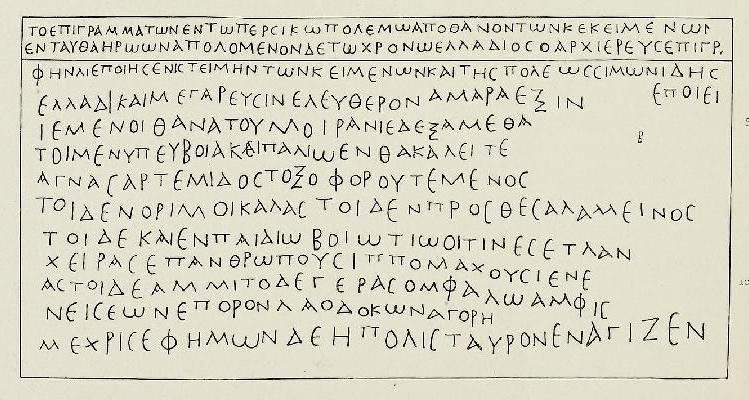 ΤΟΕΠΙΓΡΑΜΜΑΤΩΝΕΝΤΩΠΕΡCΙΚΩΠΟΛΕΜΩΑΠΟΘΑΝΟΝΤΩΝΚΕΚΕΙΜΕΝΩΝ
ΕΝΤΑΥΘΑΗΡΩΩΝΑΠΟΛΟΜΕΝΟΝΔΕΤΩΧΡΟΝΩΕΛΛΑΔΙΟCΟΑΡΧΙΕΡΕΥCΕΠΙΓΡ.
ΦΗΝΑΙΕΠΟΙΗCΕΝΙCΤΕΙΜΗΝΤΩΝΚΕΙΜΕΝΩΝΚΑΙΤΗCΠΟΛΕΩCCΙΜΩΝΙΔΗC
ΕΛΛΑΔΙΚΑΙΜΕΓΑΡΕΥCΙΝΕΛΕΥΘΕΡΟΝΑΜΑΡΑΕΞΙΝ ΕΠΟΙΕΙ
ΙΕΜΕΝΟΙΘΑΝΑΤΟΥΜΟΙΡΑΝΙΕΔΕΞΑΜΕΘΑ
ΤΟΙΜΕΝΥΠΕΥΒΟΙΑΚΑΙΠΑΛΙΩΕΝΘΑΚΑΛΕΙΤΕ
ΑΓΝΑCΑΡΤΕΜΙΔΟCΤΟΞΟΦΟΡΟΥΤΕΜΕΝΟC
ΤΟΙΔΕΝΟΡΙΜΟΙΚΑΛΑCΤΟΙΔΕΝΠΡΟCΘΕCΑΛΑΜΕΙΝΟC
ΤΟΙΔΕΚΑΙΕΝΠΑΙΔΙΩΒΟΙΩΤΙΩΟΙΤΙΝΕCΕΤΛΑΝ
ΧΕΙΡΑCΕΠΑΝΘΡΩΠΟΥCΙΠΠΟΜΑΧΟΥCΙΕΝΕ
ΑCΤΟΙΔΕΑΜΜΙΤΟΔΕΓΕΡΑCΟΜΦΑΛΩΑΜΦΙC
ΝΕΙCΕΩΝΕΠΟΡΟΝΛΑΟΔΟΚΩΝΑΓΟΡΗ
ΜΕΧΡΙCΕΦΗΜΩΝΔΕΗΠΟΛΙCΤΑΥΡΟΝΕΝΑΓΙΖΕΝ